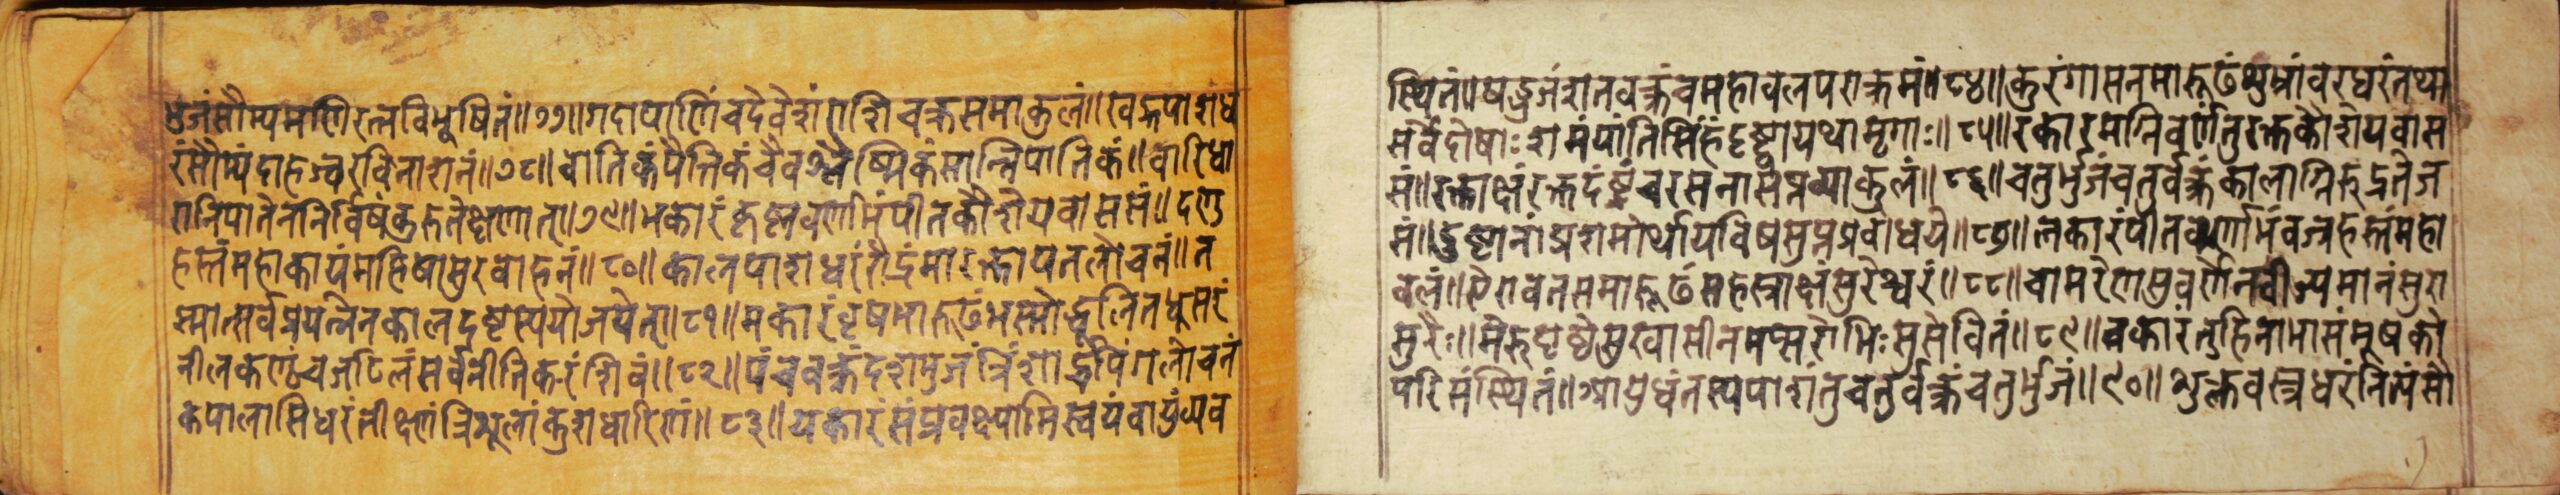 भुजंसौम्यमणिरत्नविभूषितं॥७७॥गदापाणिंचदेवेशंराशिचक्रसमाकुलं॥खड्गपाशंध
रंसौम्यंदाहज्वरविनाशनं॥७८॥वातिकंपैत्तिकंचैवश्लेष्मिकंसान्निपातिकं॥वारिधा
रानिपातेननिर्विषंकुरुतेक्षणात्॥७९॥भकारंकृष्णवर्णाभंपीतकौशेयवाससं॥दण्ड
हस्तंमहाकायंमहिषासुरवाहनं॥८०॥कालपाशधरंरौद्रंमारक्तायतलोचनं॥त
स्मात्सर्वप्रयत्नेनकालदष्टस्ययोजयेत्॥८१॥मकारंवृषमारुढंभस्मोद्धूलितधुसरं
नीलकण्ठंचजटिलंसर्वनीतिकरंशिवं॥८२॥पंचवक्त्रंदशभुजंत्रिंशार्द्धपिंगलोचनं
कपालासिधरंतीक्ष्णंत्रिशूलांकुशधारिणं॥८३॥यकारंसंप्रवक्ष्यामिस्वयंवायुंव्यव
स्थितं॥षड्भुजंशतवक्त्रंचमहावलपराक्रमं॥८४॥कुरंगासनमारूढंधुम्रांवरधरंतथा
सर्वेदोषाःशमंयांतिसिंहंदृष्ट्वायथामृगाः॥८५॥रकारमग्निवर्णंतुरक्तकौशेयवास
सं॥रक्ताक्षंरक्तदंष्ट्रंचरसनासप्तव्याकुलं॥८६॥चतुर्भुजंचतुर्वक्त्रंकालाग्निरुद्रतेज
सं॥दुष्टानांप्रशमार्थायविषसुप्तप्रवोधये॥८७॥लकारंपीतवर्णाभंवज्रहस्तंमहा
वलं॥ऐरावतसमारूढंसहस्राक्षंसुरेश्वरं॥८८॥चामरेणसुवर्णेनवीज्यमानंसुरा
सुरैः॥मेरुपृष्ठेसुखासीनमप्सरोभिःसुसेवितं॥८९॥वकारंतुहिनाभासंमूषको
परिसंस्थितं॥व्याघ्रध्वंतस्यपाशंतुचतुर्वक्त्रंचतुर्भुजं॥९०॥शुक्लवस्त्रधरंनित्यंसौ